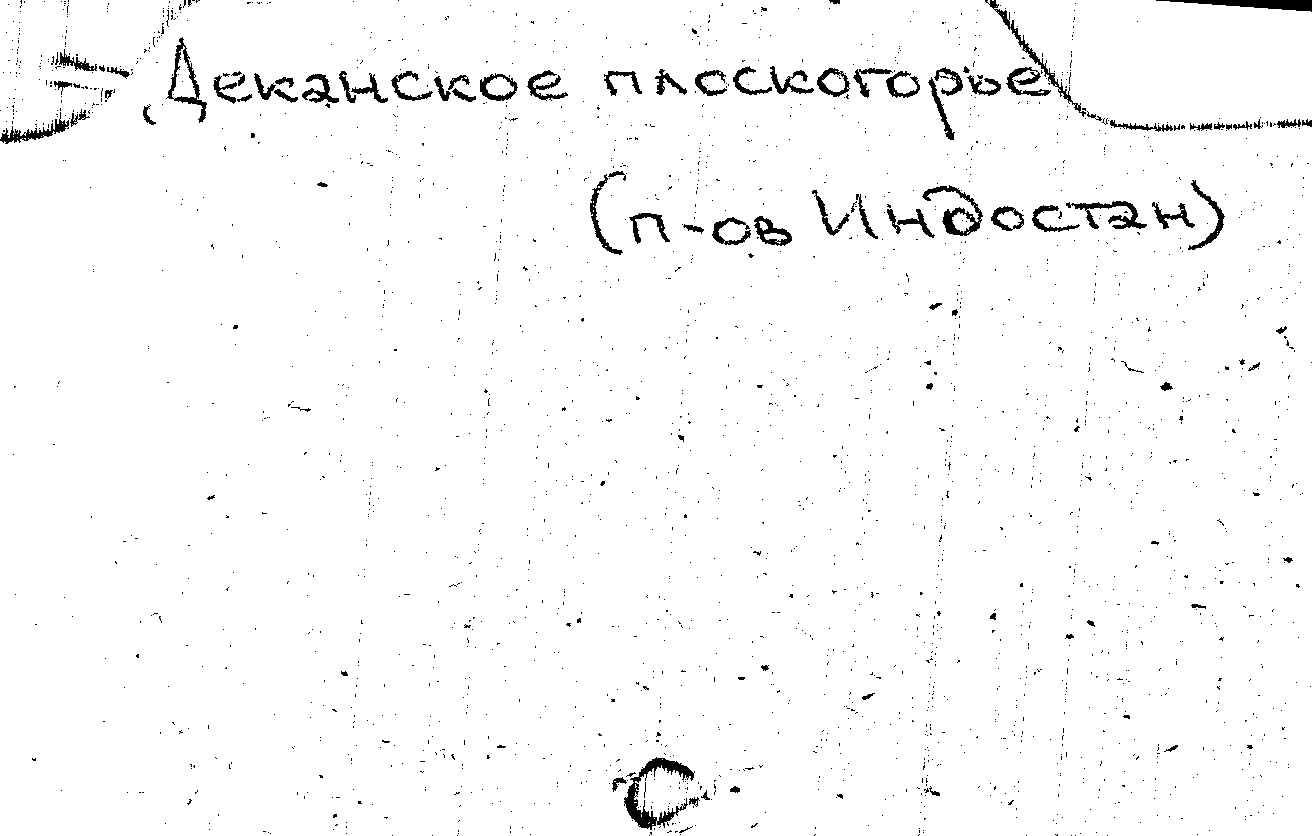 Деканское плоскогорье
(п-ов Индостан)